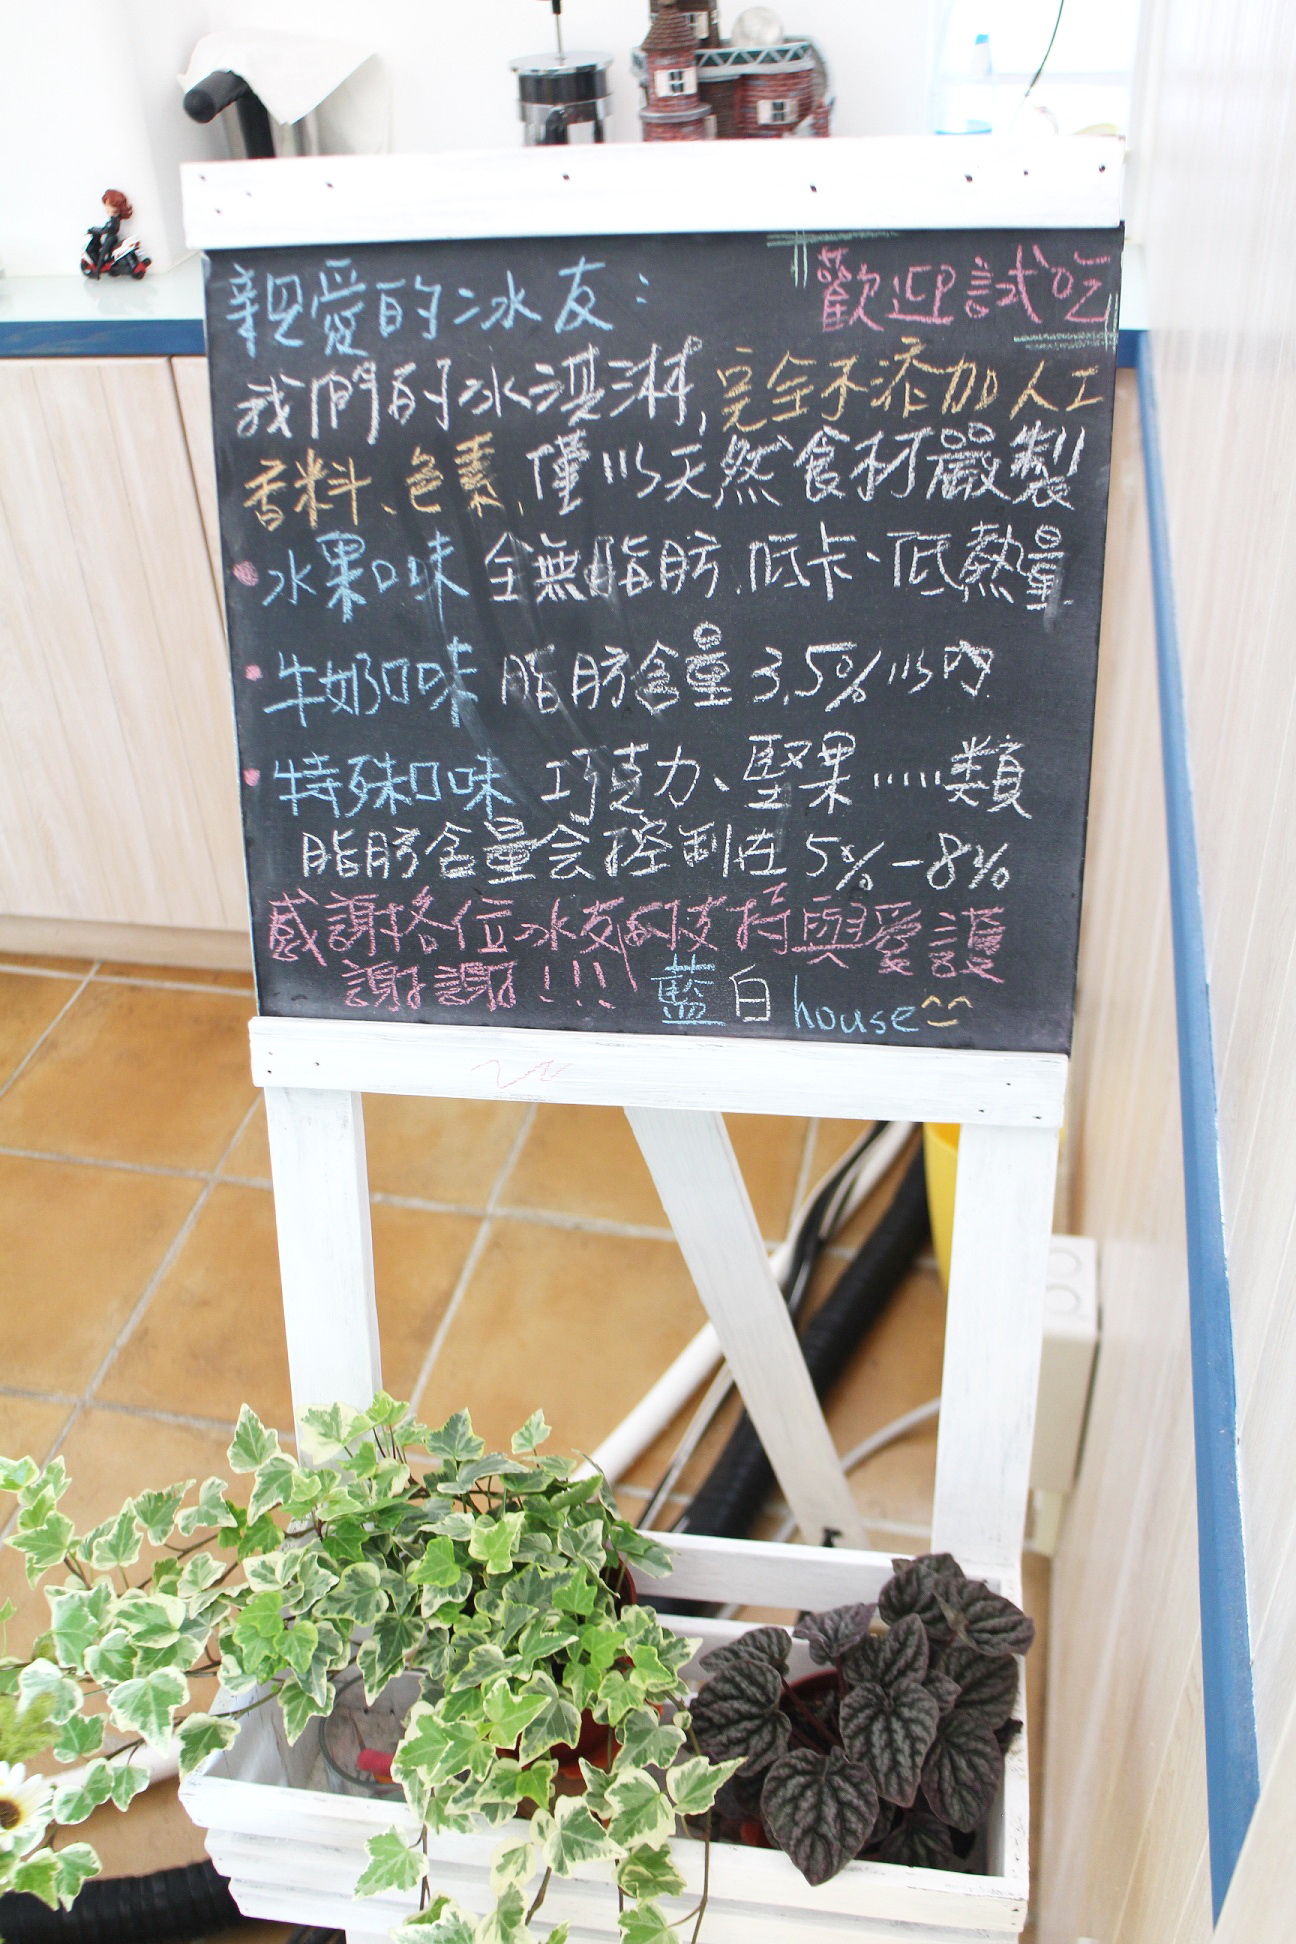 親愛的冰友：
歡迎試吃
我們的冰淇淋,完全不添加人工
香料、色素,僅以天然食材嚴製
水果口味 全無脂肪、低卡、低熱量
牛奶口味 脂肪含量3.5%以內
特殊口味 巧克力、堅果……類
脂肪含量会控制在5%-8%
感謝格位冰友的支持與愛護
謝謝!!!
藍白house^^